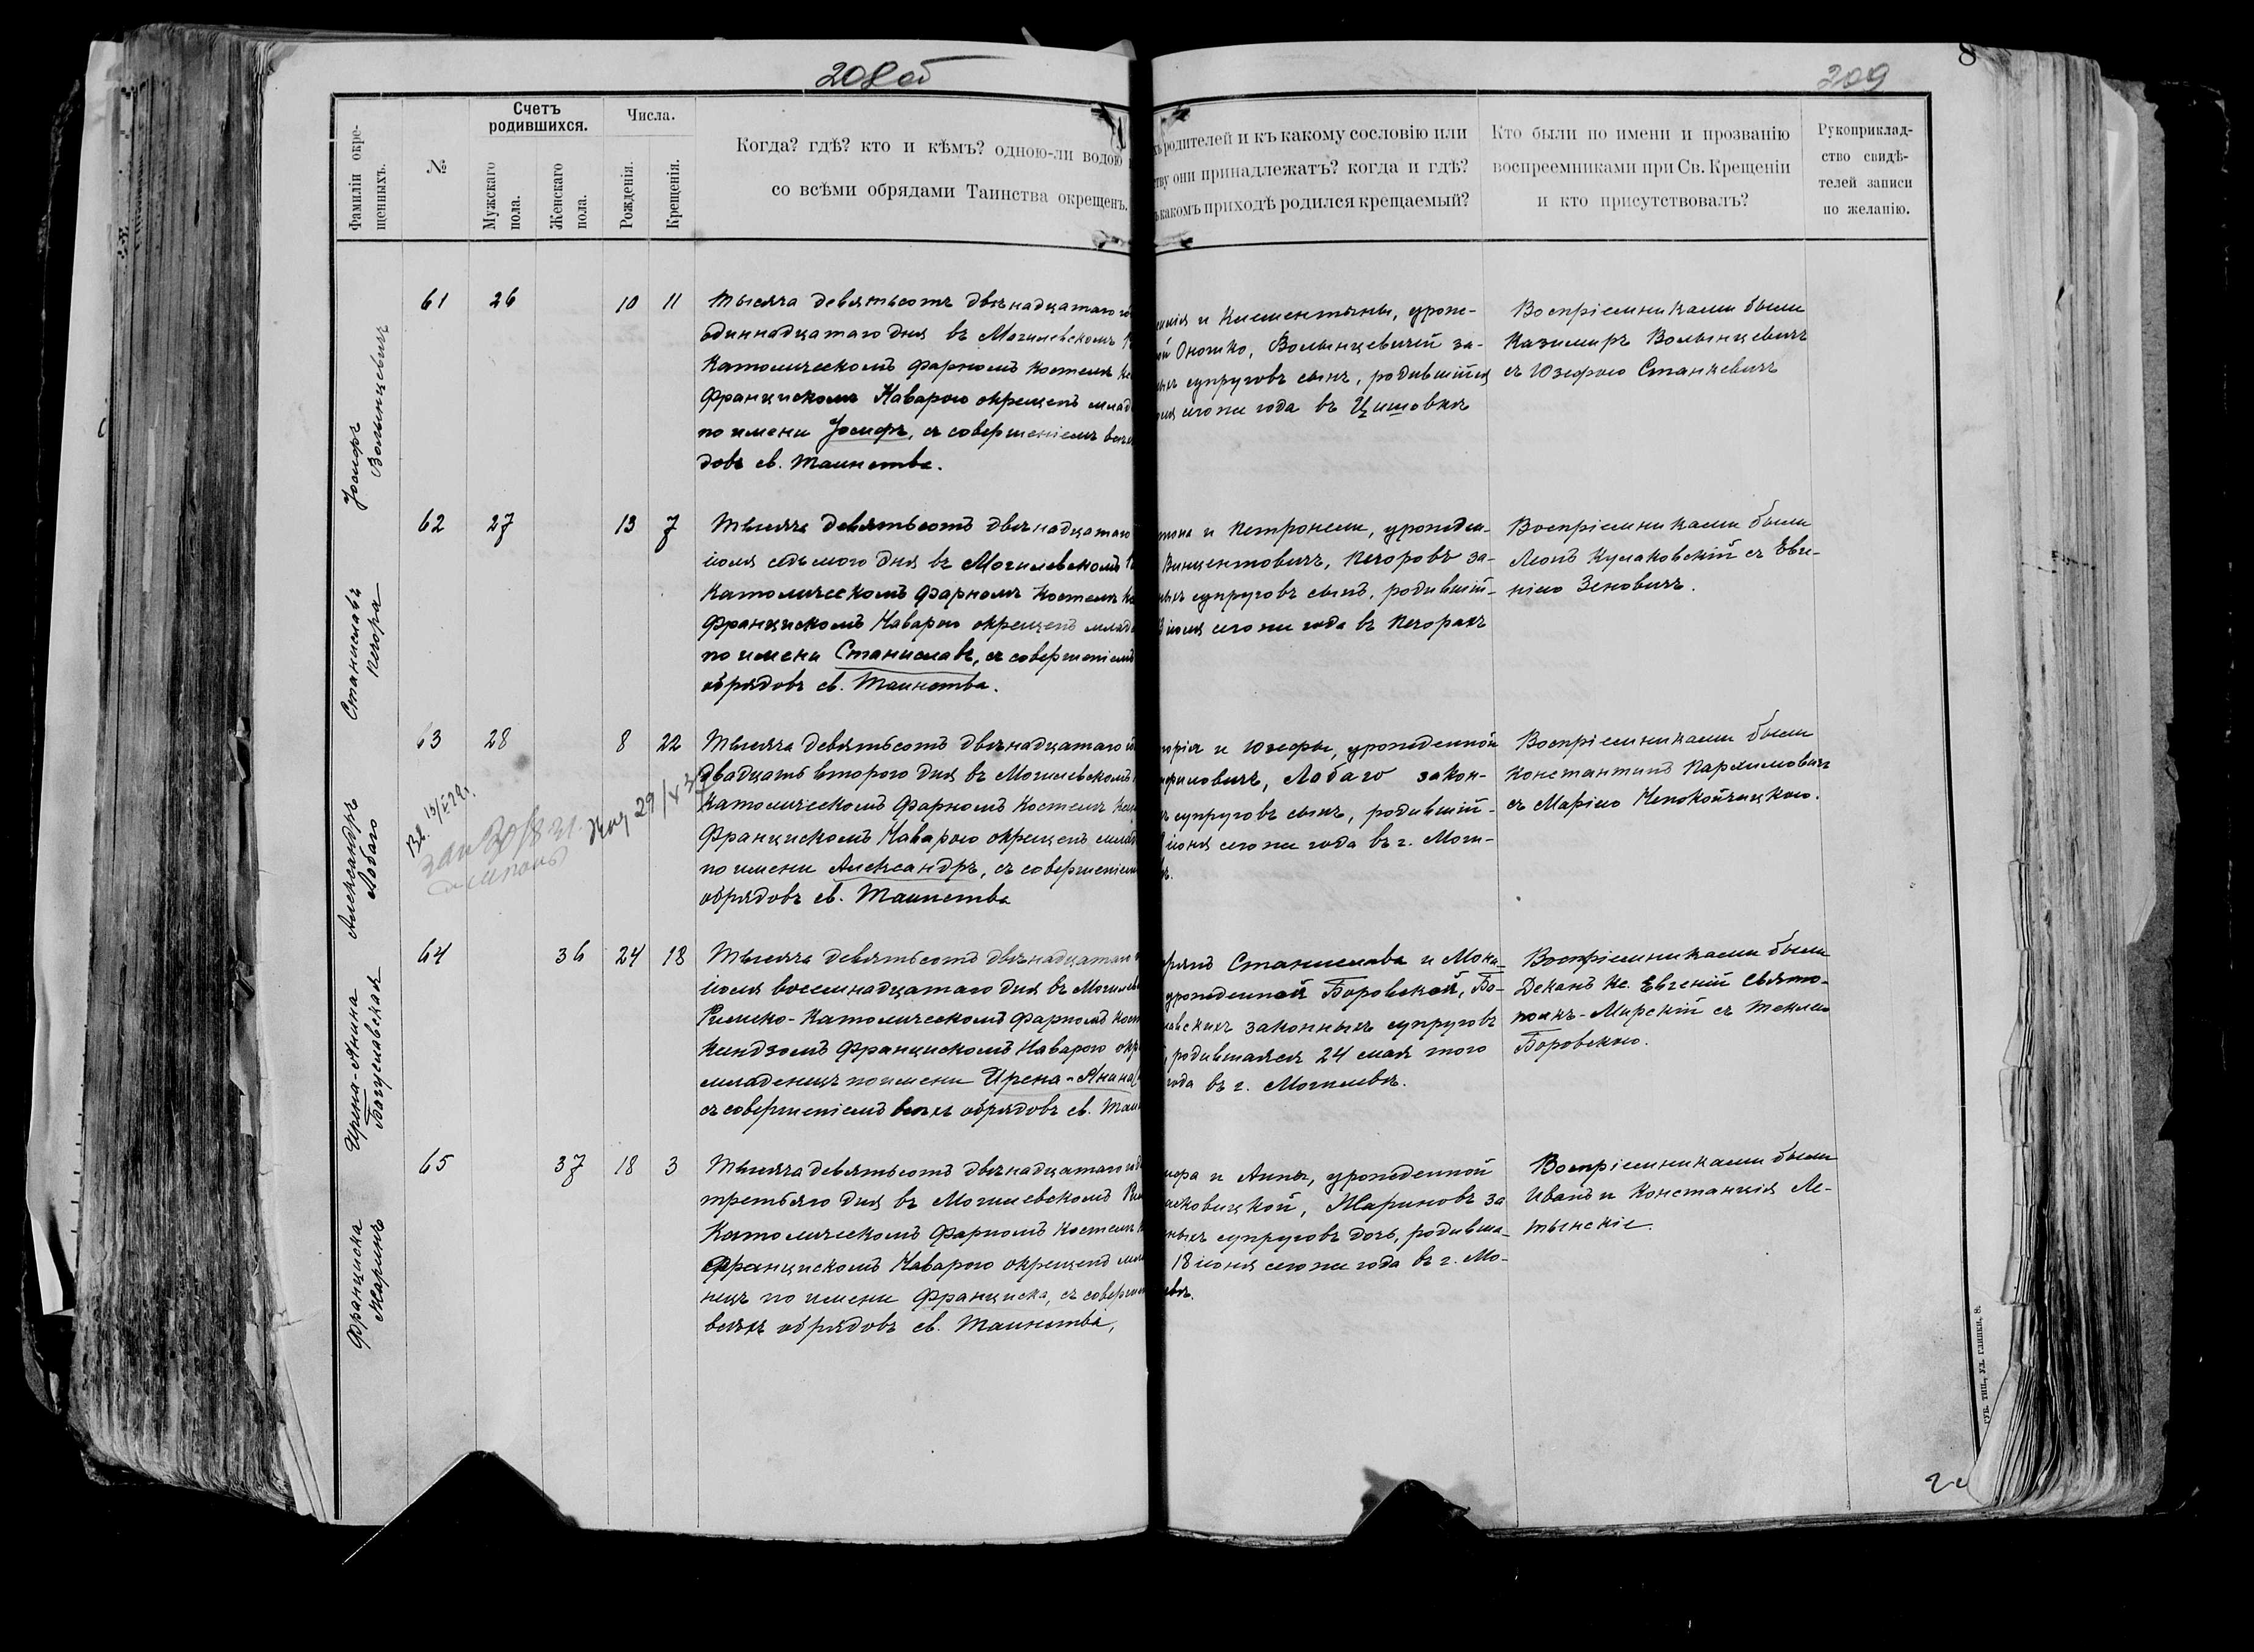 208 об
209
8
Фамиліи окре-
щенныхъ.
№
Счетъ
родившихся.
Мужскаго
пола.
Женскаго
пола.
Числа.
Рожденія.
Крещенія.
Когда? гдѣ? кто и кѣмъ? одною-ли водою
со всѣми обрядами Таинства окрещенъ.
родителей и къ какому сословію или
они принадлежатъ? когда и гдѣ?
какомъ приходѣ родился крещаемый?
Кто были по имени и прозванію
воспреемниками при Св. Крещеніи
и кто присутствовалъ?
Рукоприклад-
ство свидѣ-
телей записи
по желанію.
Іосифъ
Волынцевичъ
61 26 10 11
Тысяча девятьсотъ двѣнадцатаго
одиннадцатаго дня въ Могилевскомъ
Католическомъ фарномъ костелѣ
Францискомъ Наварого окрещенъ млад
по имени Іосифъ, съ совершеніемъ всѣх
довъ св. Таинства.
и Клементины, урож-
Оношко, Волынцевичей за-
супруговъ сынъ, родившійся
сего же года въ Цишовкѣ
Воспріемниками были
Казимиръ Волынцевичъ
съ Юзефою Станкевичъ
Станиславъ
Печора
62 27 13 7
Тысяча девятьсотъ двѣнадцатаго
іюля седьмого дня въ Могилевскомъ
Католическомъ фарномъ костелѣ
Францискомъ Наварого окрещенъ младе
по имени Станиславъ, съ совершеніемъ
обрядовъ св. Таинства.
и Петронели, урожден-
Винцентовичъ, Печоровъ за-
супруговъ сынъ, родившій-
іюля сего же года въ Печорахъ
Воспріемниками были
Леонъ Кулаковскій съ Евге-
ніею Зеновичъ.
Александръ
Лобаго
63 28 8 22
Тысяча девятьсотъ двѣнадцатаго
двадцать второго дня въ Могилевскомъ
Католическомъ фарномъ костелѣ
Францискомъ Наварого окрещенъ млад
по имени Александръ, съ совершеніем
обрядовъ св. Таинства
и Юзефы, урожденной
Лобаго закон-
супруговъ сынъ, родившій-
іюня сего же года въ г. Моги-
Воспріемниками были
Константинъ Пархимовичъ
съ Маріею Непокойчицкою.
Ирена-Янина
Богуславская
64 36 24 18
Тысяча девятьсотъ двѣнадцатаго
іюля восемнадцатаго дня въ Могилев
Римско-Католическомъ фарномъ кост
Ксендзомъ Францискомъ Наварого окр
младенецъ по имени Ирена-Янина
съ совершеніемъ всѣхъ обрядовъ св. Таи
Станислава и Мони-
урожденной Боровской, Бо-
законныхъ супруговъ
родившаяся 24 мая того
года въ г. Могилевѣ.
Воспріемниками были
Деканъ Кс. Евгеній Свято-
полкъ-Мирскій съ Теклею
Боровскою.
Франциска
Жаринъ
65 37 18 3
Тысяча девятьсотъ двѣнадцатаго
третьяго дня въ Могилевскомъ
Католическомъ фарномъ костелѣ
Францискомъ Наварого окрещенъ мла
нецъ по имени Франциска, съ соверше
всѣхъ обрядовъ св. Таинства,
и Анны, урожденной
Жариновъ за
супруговъ дочь, родивша-
18 іюня сего же года въ г. Мо-
Воспріемниками были
Иванъ и Констанція Ле-
тынскіе.
губ. тип., ул. глинки, 8.